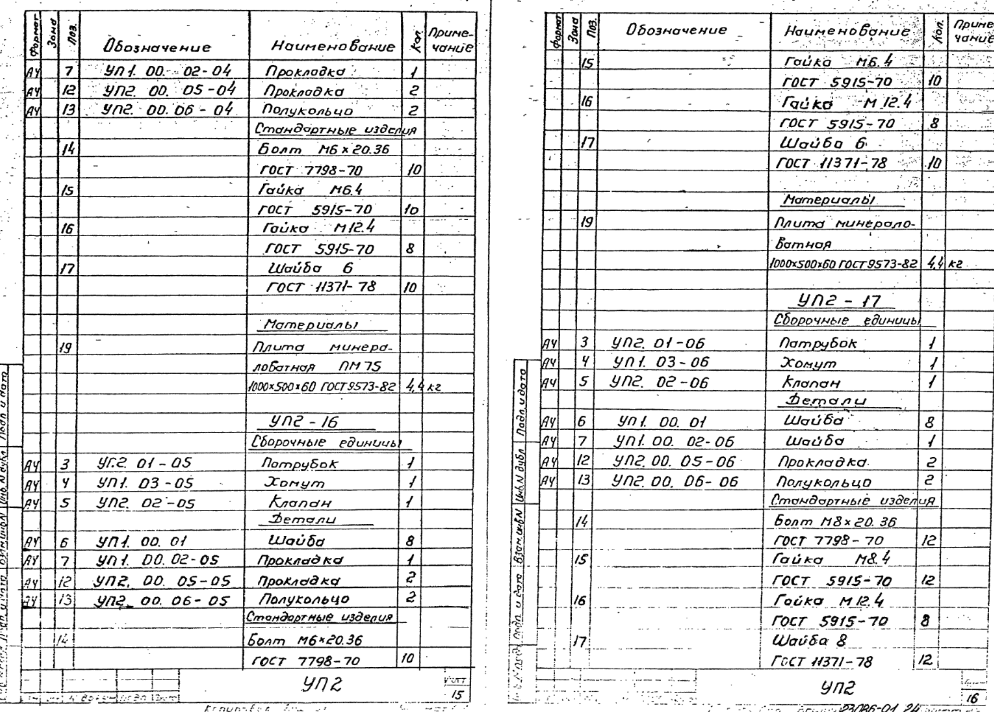 Формат Зона Поз. Обозначение Наименование Кол. Приме-чание
А4 7 УП1. 00. 02-04 Прокладка 1
А4 12 УП2. 00. 05-04 Прокладка 2
А4 13 УП2. 00. 06-04 Полукольцо 2
Стандартные изделия
14 Болт М6×20.36
ГОСТ 7798-70 10
15 Гайка М6.4
ГОСТ 5915-70 10
16 Гайка М12.4
ГОСТ 5915-70 8
17 Шайба 6
ГОСТ 11371-78 10
Материалы
19 Плита минера-
ловатная ПМ75
1000×500×60 ГОСТ 9573-82 4,4 кг
УП2-16
Сборочные единицы
А4 3 УП2 01-05 Патрубок 1
А4 4 УП1. 03-05 Хомут 1
А4 5 УП2. 02-05 Клапан 1
Детали
А4 6 УП1. 00. 01 Шайба 8
А4 7 УП1. 00. 02-05 Прокладка 1
А4 12 УП2. 00. 05-05 Прокладка 2
А4 13 УП2. 00. 06-05 Полукольцо 2
Стандартные изделия
14 Болт М6×20.36
ГОСТ 7798-70 10
УП2
Лист
15
Формат Зона Поз. Обозначение Наименование Кол. Приме-чание
15 Гайка М6.4
ГОСТ 5915-70 10
16 Гайка М12.4
ГОСТ 5915-70 8
17 Шайба 6
ГОСТ 11371-78 10
Материалы
19 Плита минерало-
ватная
1000×500×60 ГОСТ 9573-82 4,4 кг
УП2-17
Сборочные единицы
А4 3 УП2. 01-06 Патрубок 1
А4 4 УП1. 03-06 Хомут 1
А4 5 УП2. 02-06 Клапан 1
Детали
А4 6 УП1. 00. 01 Шайба 8
А4 7 УП1. 00. 02-06 Шайба 1
А4 12 УП2. 00. 05-06 Прокладка 2
А4 13 УП2. 00. 06-06 Полукольцо 2
Стандартные изделия
14 Болт М8×20.36
ГОСТ 7798-70 12
15 Гайка М8.4
ГОСТ 5915-70 12
16 Гайка М12.4
ГОСТ 5915-70 8
17 Шайба 8
ГОСТ 11371-78 12
Подп. и дата Взам.инв.N Инв.N дубл Подп. и дата
УП2
16
23086-01 24